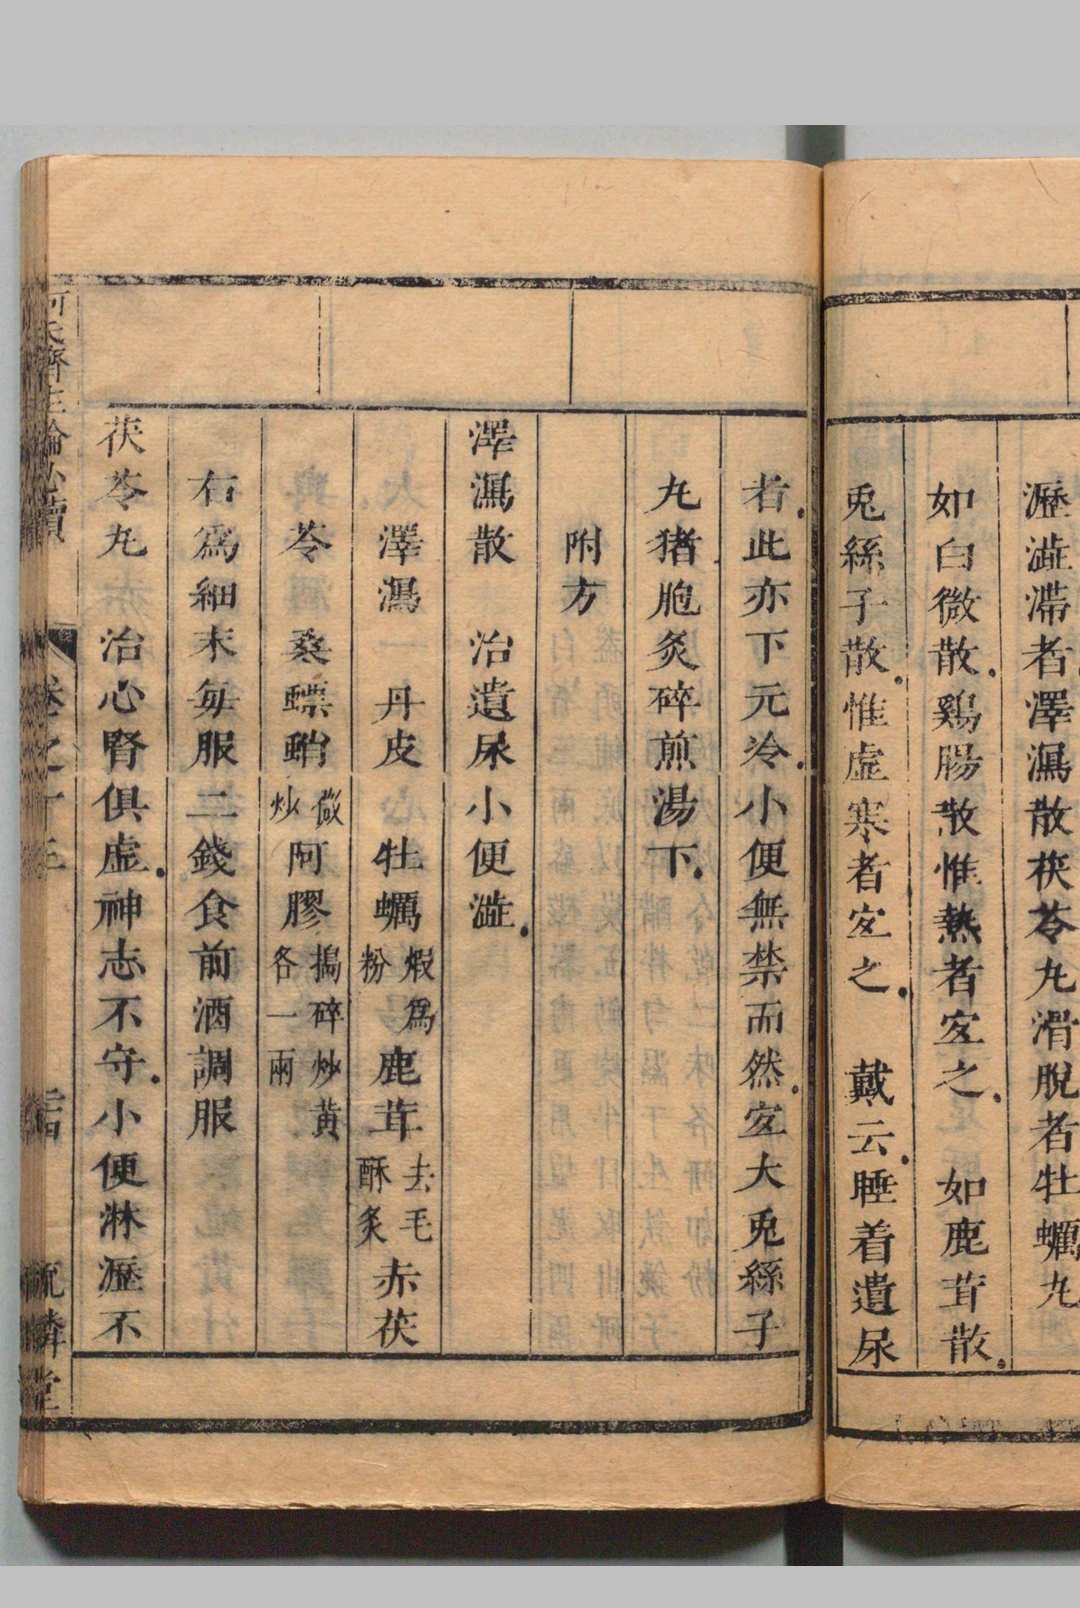 瀝澁滯者澤瀉散茯苓丸滑脫者牡蠣丸
如白微散鷄腸散惟熱者宐之 如鹿茸散
兎絲子散惟虛寒者宐之 戴云睡着遺尿
者此亦下元冷小便無禁而然宐大兎絲子
丸猪胞炙碎煎湯下
附方
澤瀉散 治遺尿小便澁
澤瀉一 丹皮 牡蠣煅爲粉鹿茸去毛酥炙赤茯
苓 桑螵蛸微炒阿膠搗碎炒黃各一兩
右爲細末每服二錢食前酒調服
茯苓丸 治心腎俱虛神志不守小便淋瀝不
卷之十三